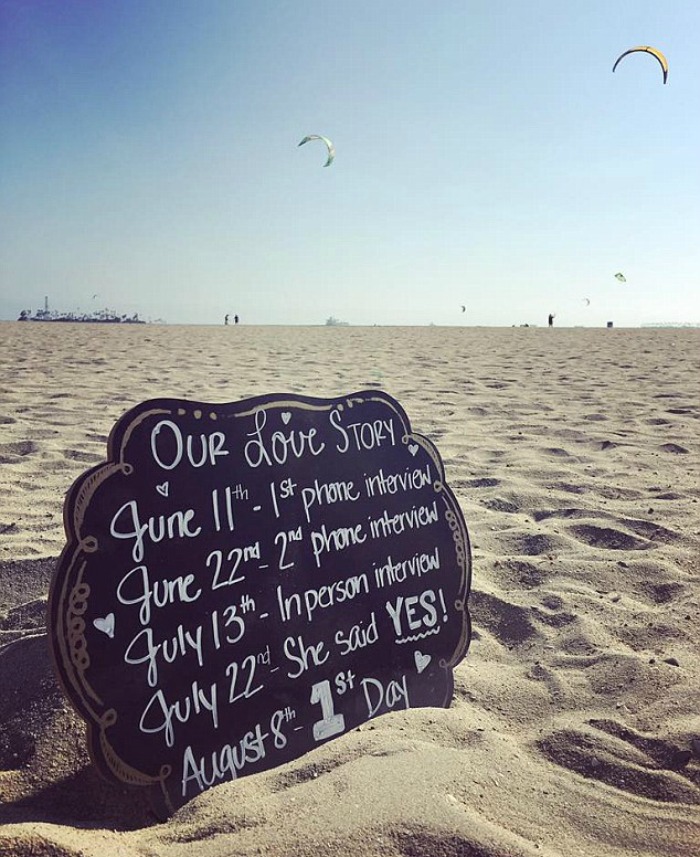 OUR Love STORY
June 11th - 1st phone interview
June 22nd - 2nd phone interview
July 13th - In person interview
July 22nd - She said YES!
August 8th - 1st Day